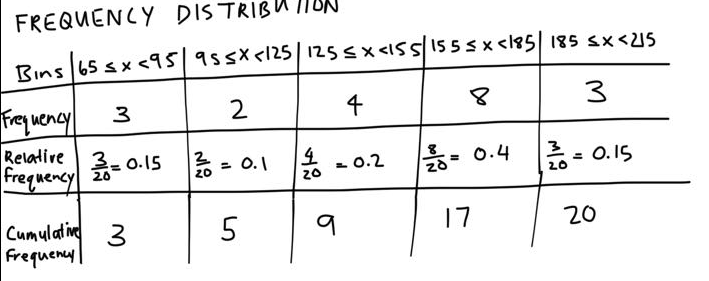 FREQUENCY DISTRIBUTION
Bins 65 ≤ x < 95 95 ≤ x < 125 125 ≤ x < 155 155 ≤ x < 185 185 ≤ x < 215
Frequency 3 2 4 8 3
Relative
Frequency 3/20 = 0.15 2/20 = 0.1 4/20 = 0.2 8/20 = 0.4 3/20 = 0.15
Cumulative
Frequency 3 5 9 17 20